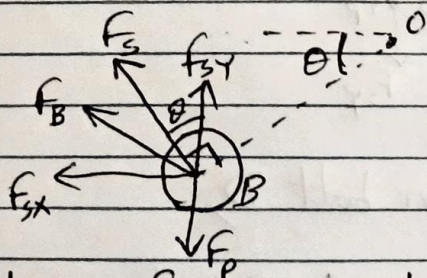 O
F_S
F_SY
θ
F_B
θ
F_SX
B
F_P